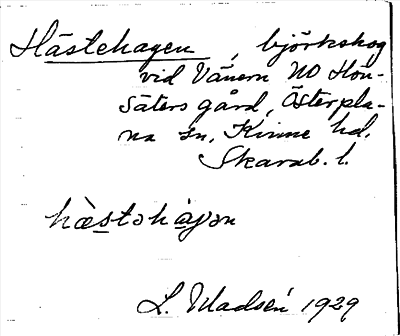 Hästehagen, björkskog
vid Vänern NO Hön-
säters gård, Österpla-
na sn, Kinne hd.
Skarab. l.
hæ̀stəhàgən
L. Madsén 1929